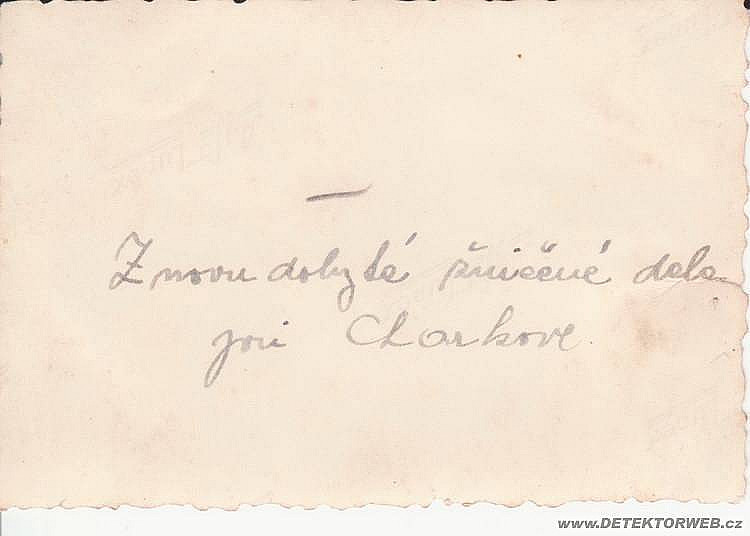 Znovu dobyté zničené dela
pri Charkove.
www.DETEKTORWEB.cz